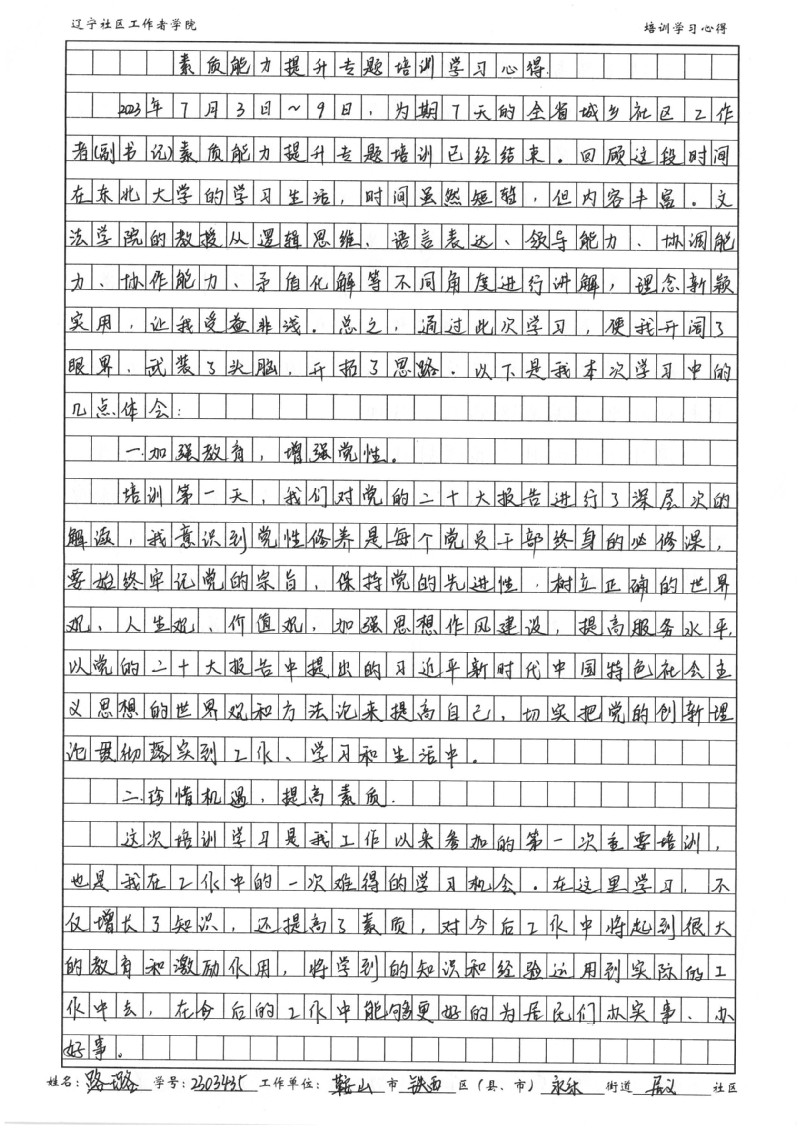 辽宁社区工作者学院 培训学习心得
素质能力提升专题培训学习心得.
2023年7月3日~9日，为期7天的全省城乡社区工作
者(副书记)素质能力提升专题培训已经结束。回顾这段时间
在东北大学的学习生活，时间虽然短暂，但内容丰富。文
法学院的教授从逻辑思维、语言表达、领导能力、协调能
力、协作能力、矛盾化解等不同角度进行讲解，理念新颖
实用，让我受益非浅。总之，通过此次学习，使我开阔了
眼界，武装了头脑，开拓了思路。以下是我本次学习中的
几点体会：
一.加强教育，增强党性。
培训第一天，我们对党的二十大报告进行了深层次的
解读，我意识到党性修养是每个党员干部终身的必修课，
要始终牢记党的宗旨，保持党的先进性，树立正确的世界
观、人生观、价值观，加强思想作风建设，提高服务水平，
以党的二十大报告中提出的习近平新时代中国特色社会主
义思想的世界观和方法论来提高自己，切实把党的创新理
论贯彻落实到工作、学习和生活中。
二.珍惜机遇，提高素质.
这次培训学习是我工作以来参加的第一次重要培训，
也是我在工作中的一次难得的学习机会。在这里学习，不
仅增长了知识，还提高了素质，对今后工作中将起到很大
的教育和激励作用，将学到的知识和经验运用到实际的工
作中去，在今后的工作中能够更好的为居民们办实事、办
好事。
姓名：路璐 学号：2303435 工作单位：鞍山 市 铁西 区（县、市） 永乐 街道 居义 社区